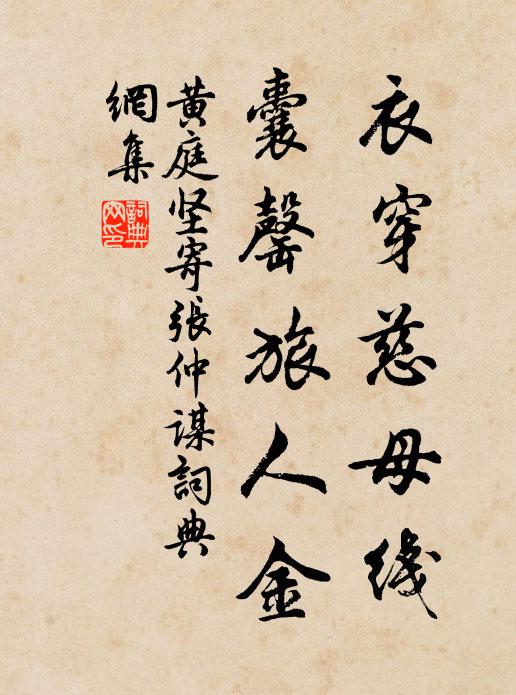 衣穿慈母线
囊罄旅人金
黄庭坚寄張仲谋詞典
網集
詞典
网印